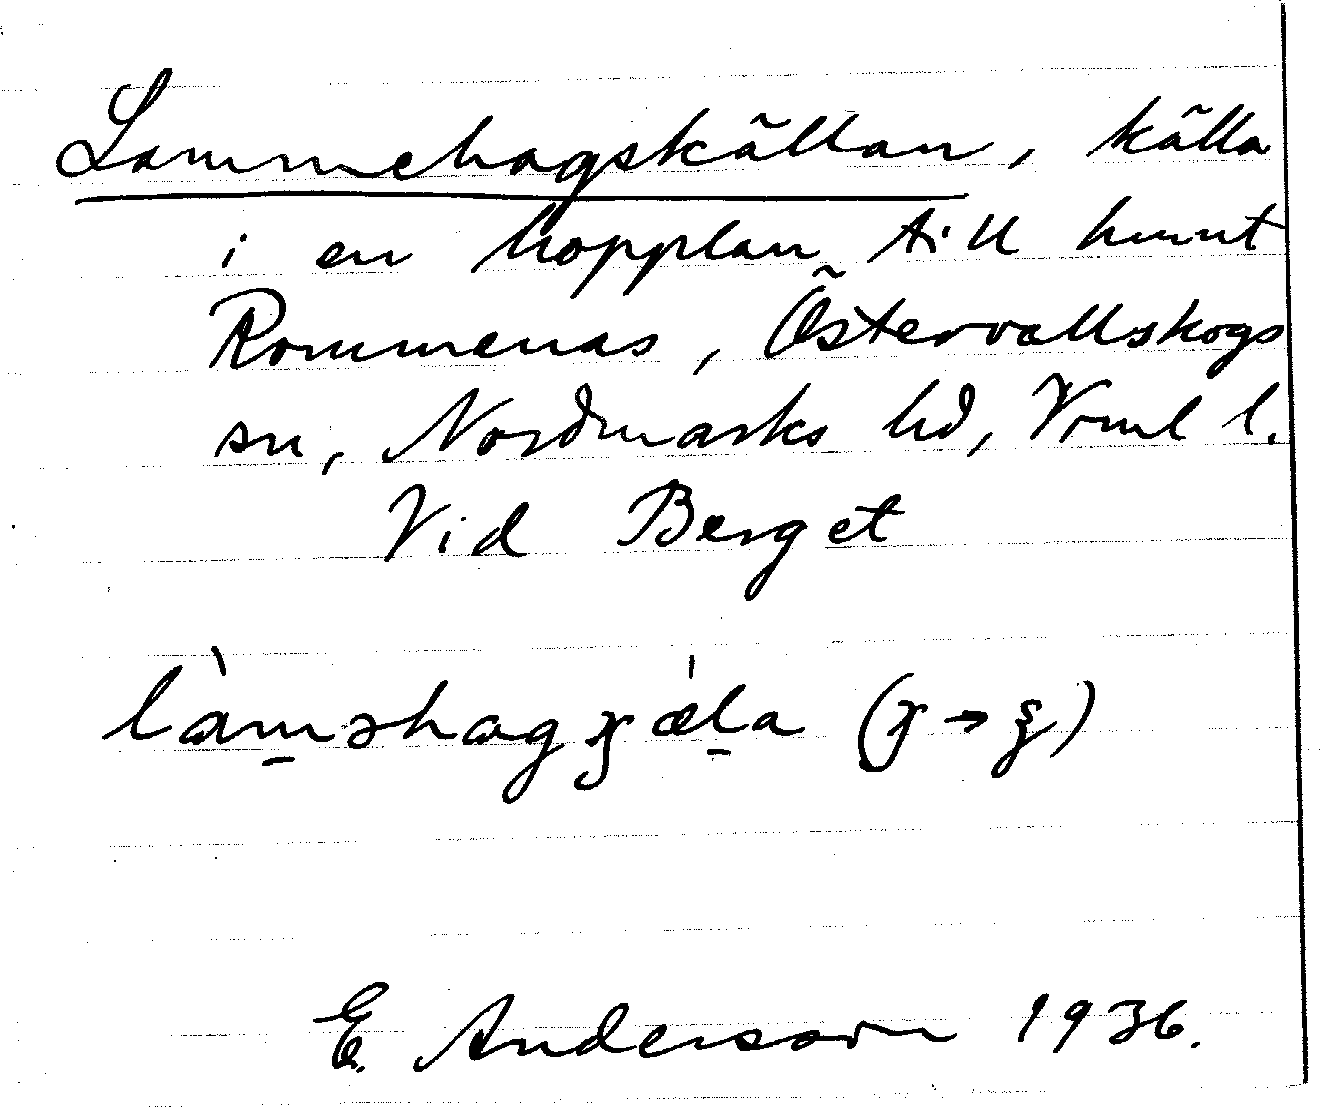 Lammehagskällan, källa
i en hopplan till hmnt
Rommenäs, Östervallskogs
sn, Nordmarks hd, Vrml l.
Vid Berget
E. Anderson 1936.